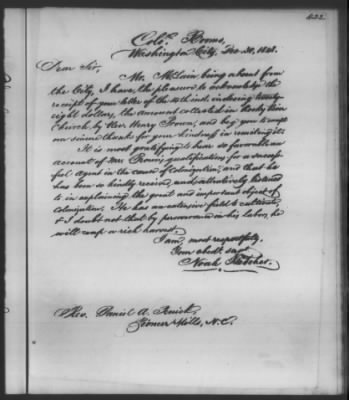 422
Coln. Rooms,
Washington City, Dec. 20, 1848.
Dear Sir,
Mr. McLain being absent from
the City, I have the pleasure to acknowledge the
receipt of your letter of the 14th inst. inclosing twenty
eight dollars, the amount collected in
Church by Rev. Henry Brown; and beg you to accept
our sincere thanks for your kindness in remitting it.
It is most gratifying to have so favorable an
account of Mr. Brown's qualifications for a success-
ful Agent in the cause of Colonization, and that he
has been so kindly received, and attentively listened
to in explaining the great and important object of
Colonization. He has an extensive field to cultivate,
& I doubt not that by perseverance in his labors, he
will reap a rich harvest.
I am, most respectfully,
Your obedt. servt.
Noah Fletcher.
Rev. Daniel A. Penick,
Pioneer Mills, N.C.